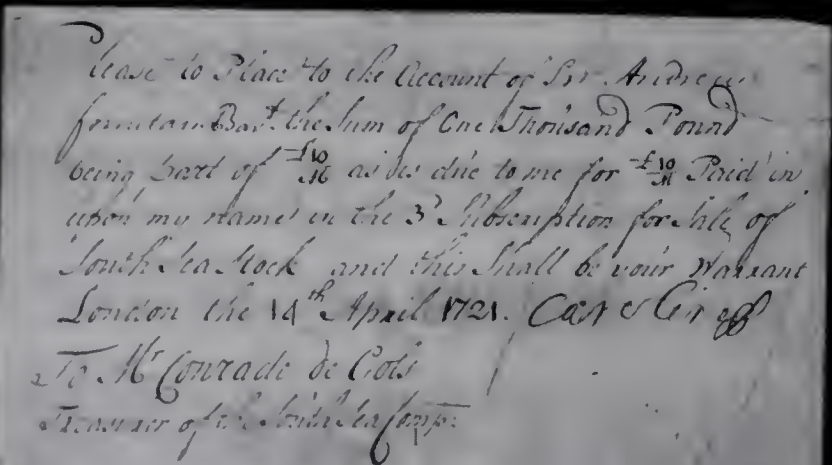 Please to Place to the Account of Sir Andrew
fountain Bart. the Sum of One Thousand Pound
being part of £10/M as is due to me for £10/M Paid in
upon my name in the 3d Subscription for Sale of
South Sea Stock and this Shall be your Warrant
London the 14th April 1721.
To Mr Conrade de Gols
Treasurer of the South Sea Comp: